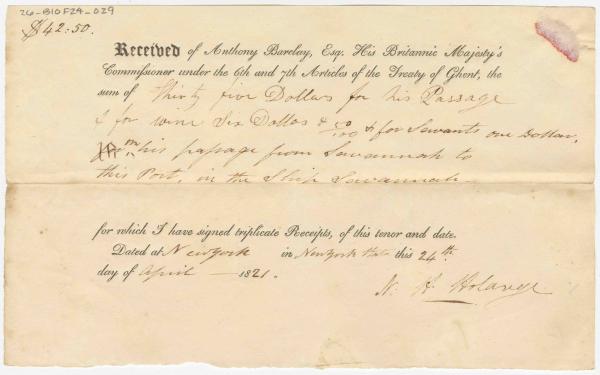 26-B10F24-029
$42:50.
Received of Anthony Barclay, Esq. His Britannic Majesty's
Commissioner under the 6th and 7th Articles of the Treaty of Ghent, the
sum of thirty five Dollars for his Passage
& for wine Six Dollas & 50/100 & for Servants one Dollar,
his passage from Savannah to
this Port, in the Ship Savannah
for which I have signed triplicate Receipts, of this tenor and date.
Dated at New York in New York State this 24th
day of April 1821.
N. H. Holdrege